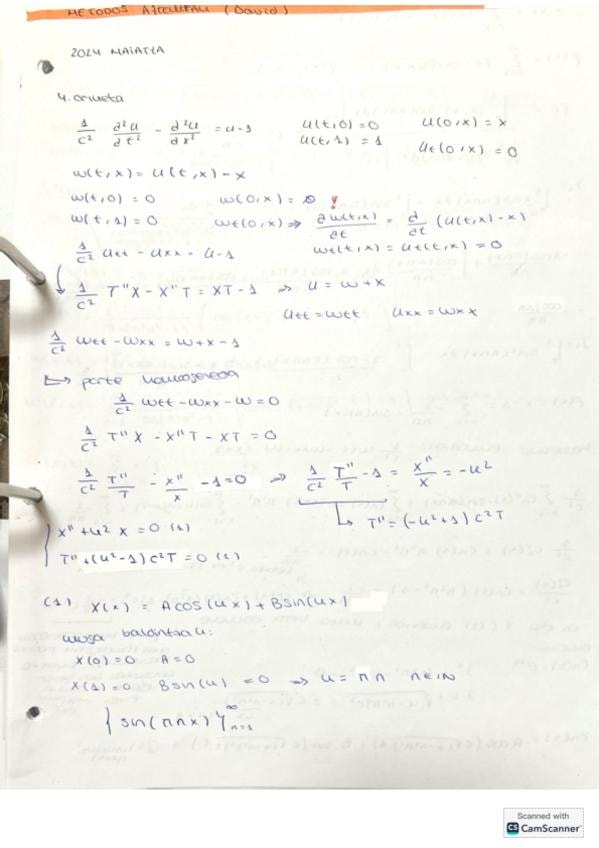 METODOS AJCEUTAU (David)
2024 MAIATZA
4. oriueta
1/c² ∂²u/∂t² - ∂²u/∂x² = u-1 u(t,0)=0 u(0,x)=x
u(t,1)=1 ut(0,x)=0
w(t,x)=u(t,x)-x
w(t,0)=0 w(0,x)=0 !
w(t,1)=0 wt(0,x)⇒ ∂w(t,x)/∂t = ∂/∂t (u(t,x)-x)
1/c² utt - uxx = u-1 wt(t,x)=ut(t,x)=0
1/c² T''X - X''T = XT-1 ⇒ u=w+x
utt=wtt uxx=wxx
1/c² wtt-wxx=w+x-1
↳ parte homogenea
1/c² wtt-wxx-w=0
1/c² T''X - X''T - XT=0
1/c² T''/T - X''/X - 1=0 ⇒ 1/c² T''/T - 1 = X''/X = -u²
↳ T''=(-u²+1)c²T
{ X''+u²X=0 (1)
T''+(u²-1)c²T=0 (2)
(1) X(x)=Acos(ux)+Bsin(ux)
muga baldintzau:
X(0)=0 A=0
X(1)=0 Bsin(u)=0 ⇒ u=nπ n∈ℕ
{sin(nπx)}∞n=1
Scanned with
CS CamScanner